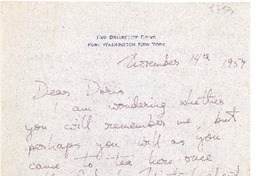 Port Washington New York
November 14th 1957
Dear Doris
I am wondering whether
you will remember me, but
perhaps you will as you
came to tea here once